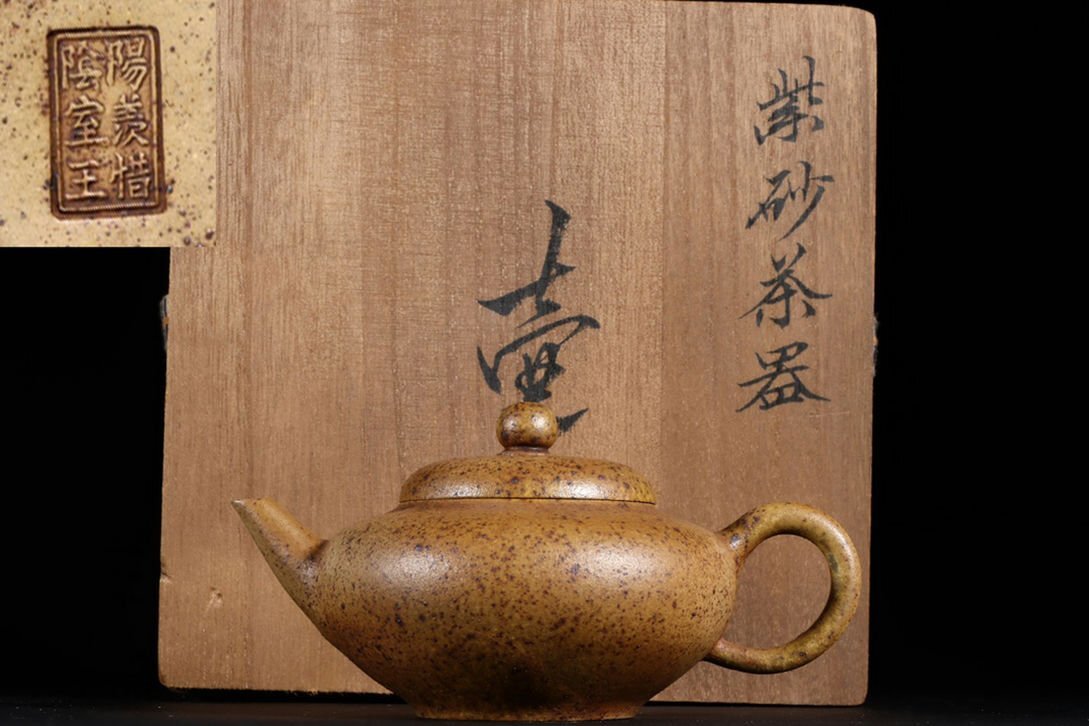 陽羨惜
陰室王
紫砂茶器
壷